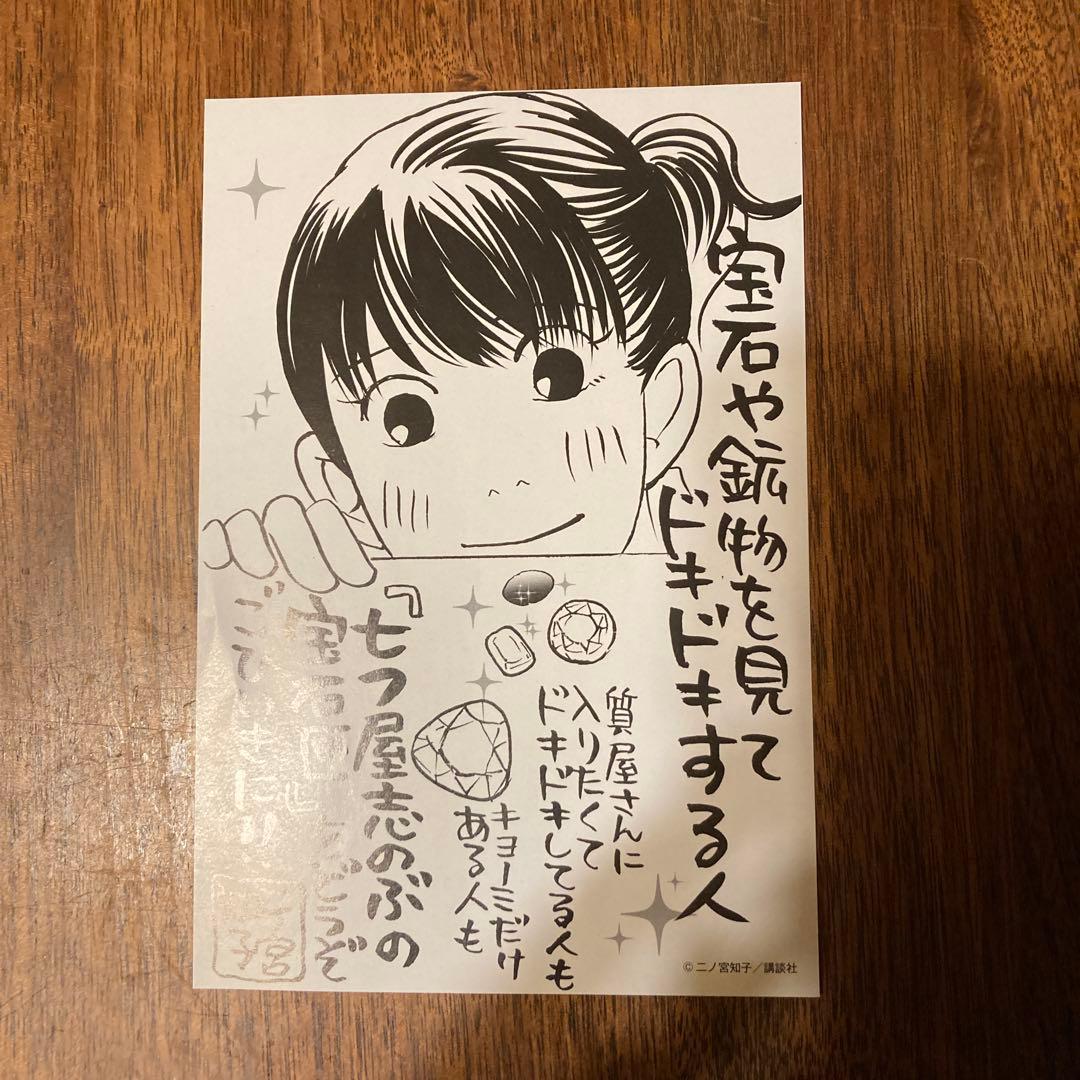 宝石や鉱物を見て
ドキドキする人
質屋さんに
入りたくて
ドキドキしてる人も
キョーミだけ
ある人も
『七つ屋志のぶの
宝石匣』をどうぞ
©二ノ宮知子／講談社